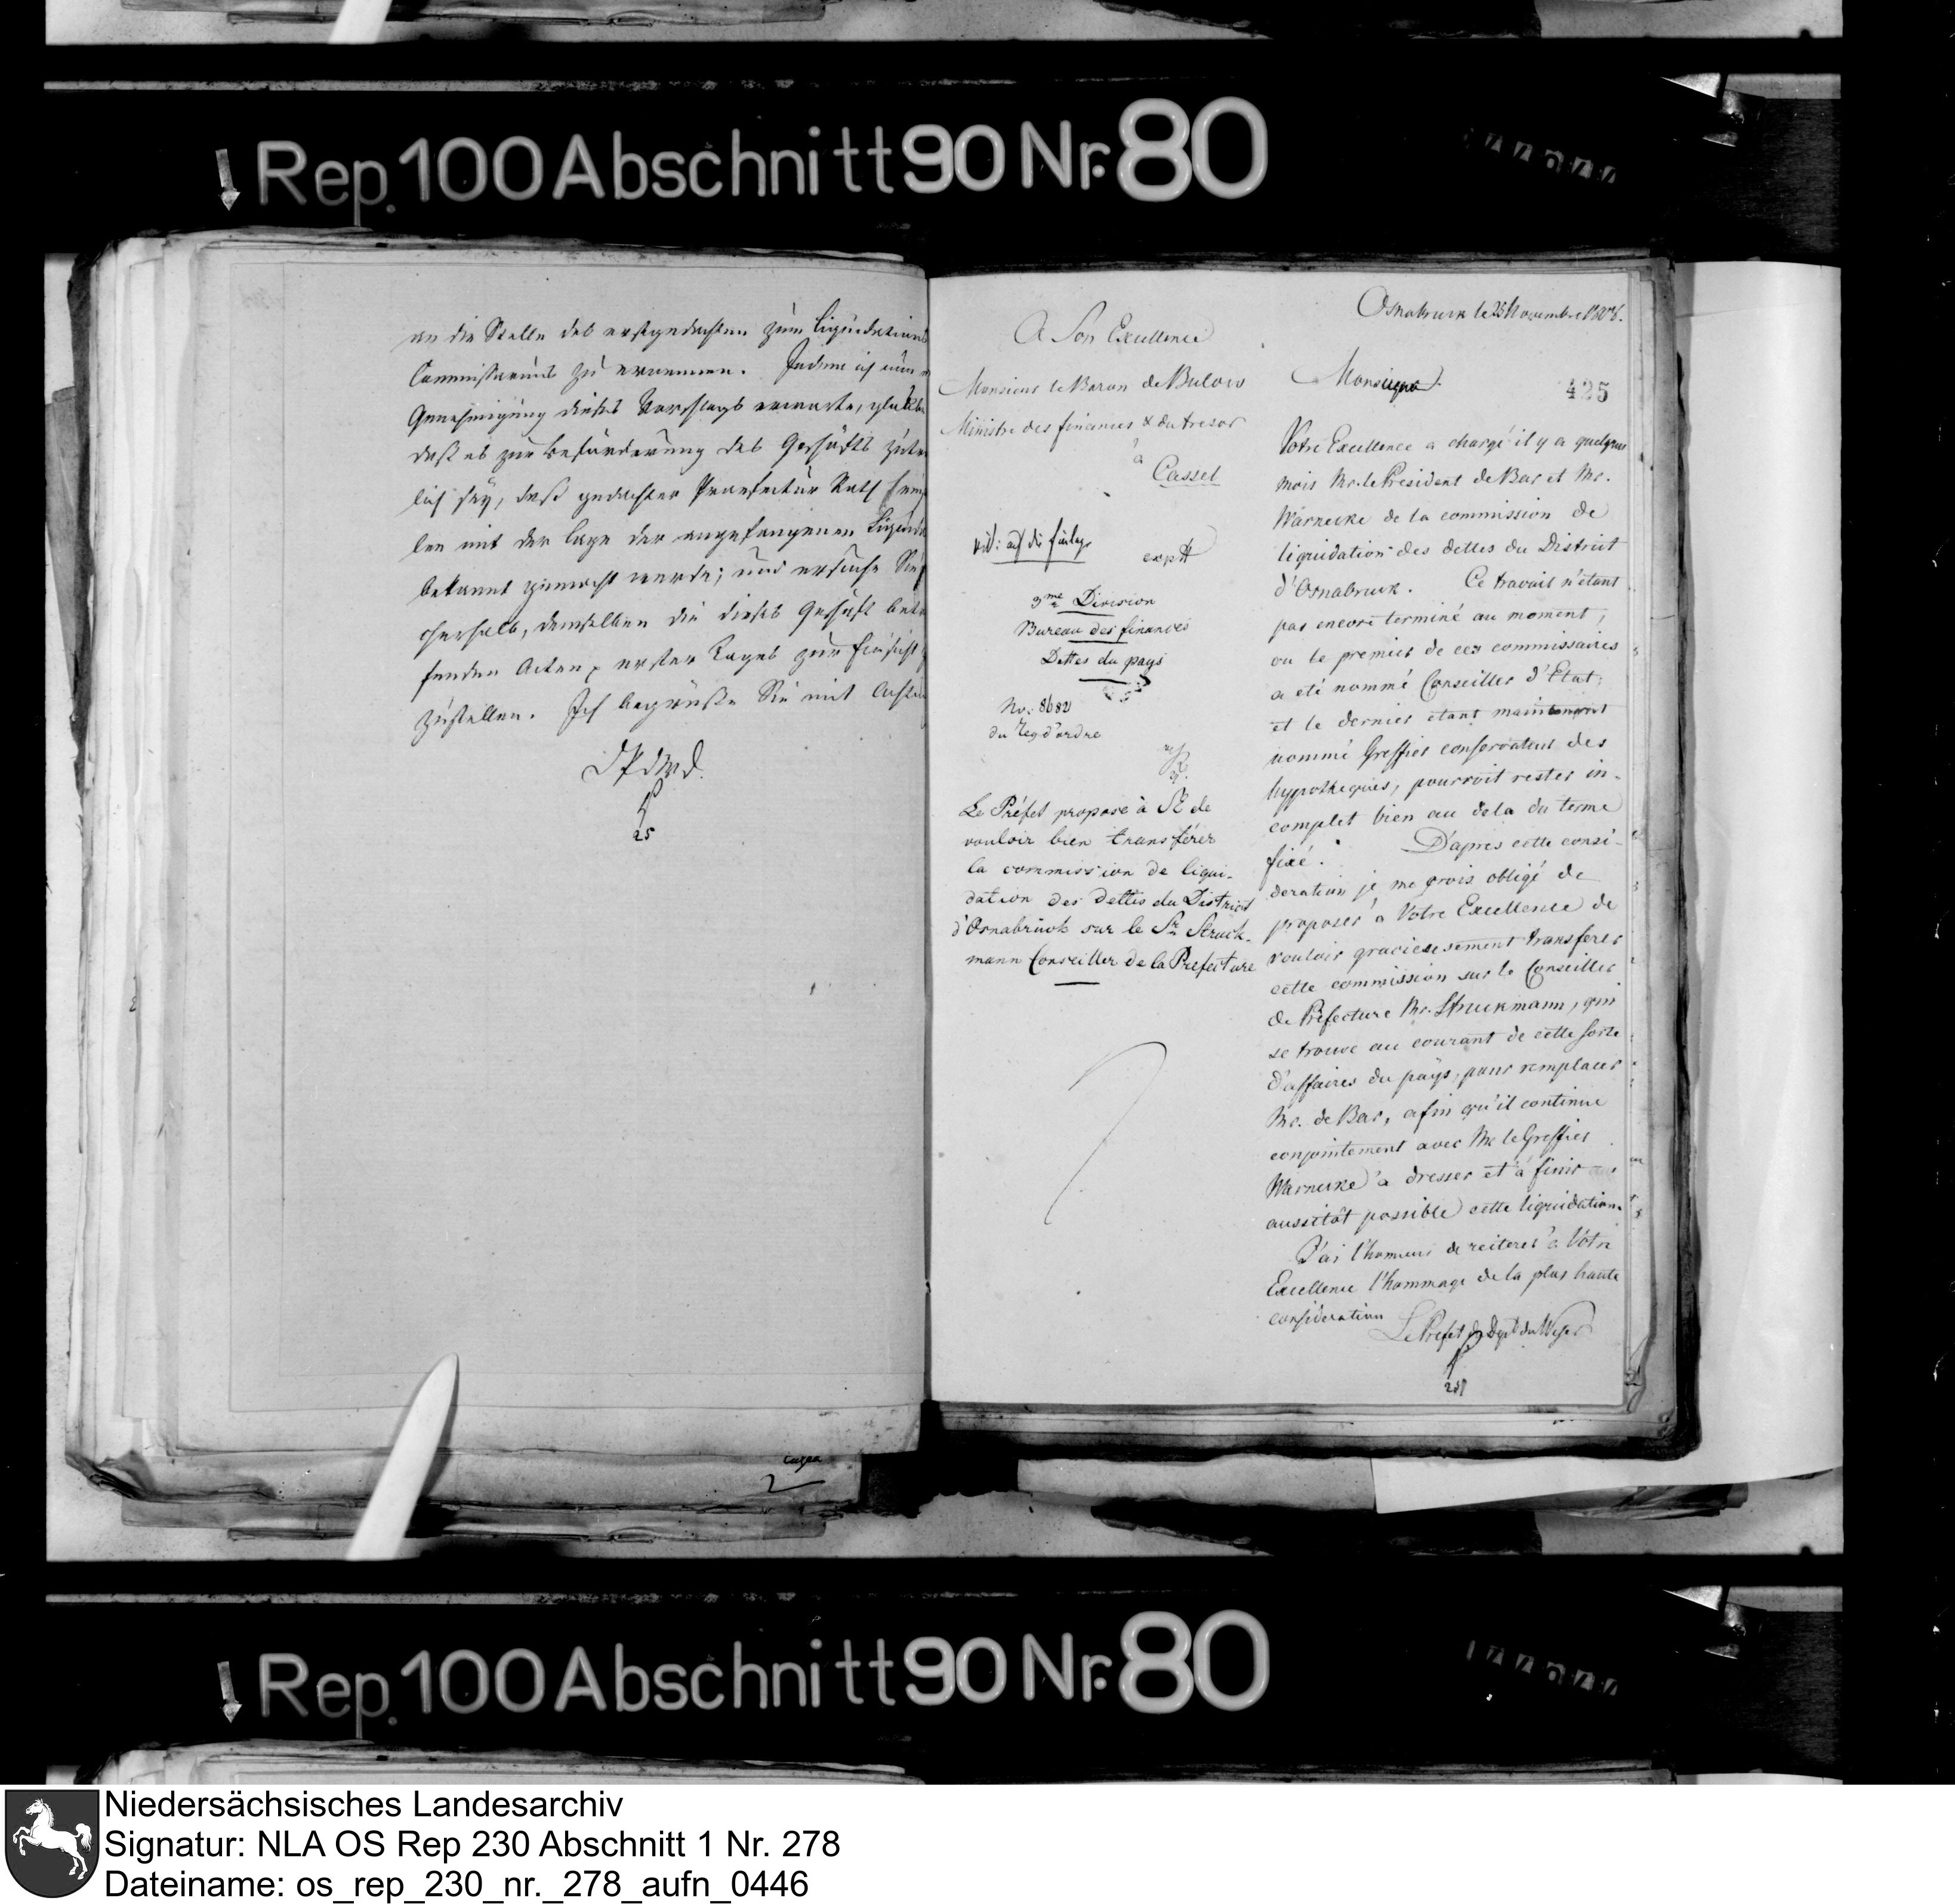 Rep. 100 Abschnitt 90 Nr. 80
an die Stelle des erstgedachten zum Liquidations
Commissarius zu ernennen. Indem ich nun
Genehmigung dieses Vorschlags erwarte, glaube
daß es zur Beförderung des Geschäfts zuträ
lich sey, daß gedachter Praefectur Rath
len mit der Lage der angefangenen Liquida
bekannt gemacht werde; und ersuche Sie
deshalb, demselben die dieses Geschäft betre
fenden Acten, erster Tages zur Einsicht
zustellen. Ich begrüße Sie mit Achtu
D P d W D.
25
A Son Excellence
Monsieur le Baron de Bulow
Ministre des finances & du tresor
à
Cassel
vid: auf die Einlage
exp
3me Division
Bureau des finances
Dettes du pays
No: 8682
du reg. d'ordre
Le Préfet propose à SE de
vouloir bien transférer
la commission de liqui-
dation des dettes du District
d'Osnabrück sur le Sr. Struck-
mann Conseiller de la Prefecture
Osnabruck le 25 Novembre 1808.
Monsieur
425
Votre Excellence a chargé il y a quelques
mois Mr. le President de Bar et Mr.
Warnecke de la commission de
liquidation des dettes du District
d'Osnabruck. Ce travail n'etant
pas encore terminé au moment,
ou le premier de ces commissaires
a eté nommé Conseiller d'Etat,
et le dernier etant maintenant
nommé Greffier conservateur des
hypotheques, pourroit rester in-
complet bien au dela du terme
fixé. D'apres cette consi-
deration je me crois obligé de
proposer à Votre Excellence de
vouloir gracieusement transferer
cette commission sur le Conseiller
de Préfecture Mr. Struckmann, qui
se trouve au courant de cette sorte
d'affaires du pays, pour remplacer
Mr. de Bar, afin qu'il continue
conjointement avec Mr le Greffier
Warnecke à dresser et à finir
aussitôt possible cette liquidation.
J'ai l'honneur de reiterer à Votre
Excellence l'hommage de la plus haute
consideration
Le Prefet du Dept du Weser
25
Rep. 100 Abschnitt 90 Nr. 80
Niedersächsisches Landesarchiv
Signatur: NLA OS Rep 230 Abschnitt 1 Nr. 278
Dateiname: os_rep_230_nr._278_aufn_0446